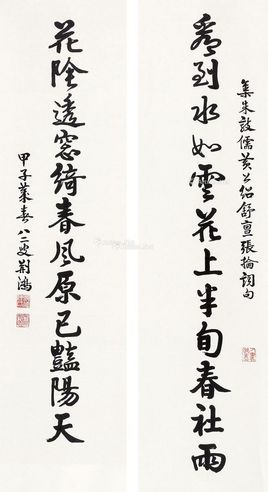 集朱敦儒黃公紹舒亶張掄詞句
看到水如雲花上半旬春社雨
花陰透窗綺春風原已豔陽天
甲子莫春八二叟荊鴻